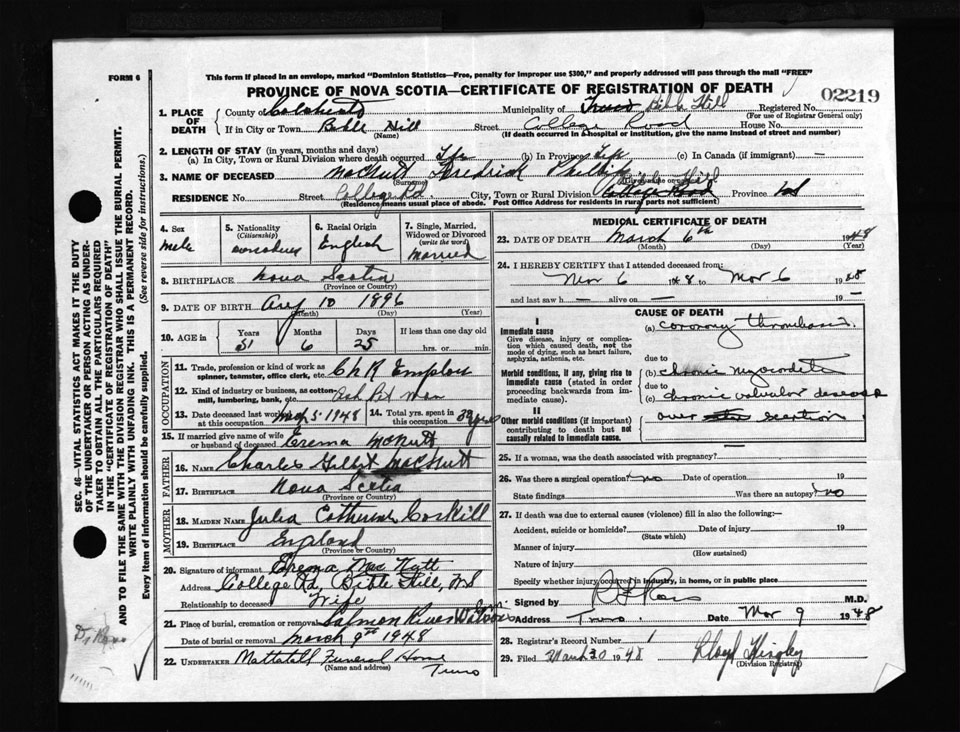 FORM 6
This form if placed in an envelope, marked "Dominion Statistics—Free, penalty for improper use $300," and properly addressed will pass through the mail "FREE"
PROVINCE OF NOVA SCOTIA—CERTIFICATE OF REGISTRATION OF DEATH
02219
1. PLACE OF DEATH
County of Colchester Municipality of Truro Bible Hill Registered No.
(For use of Registrar General only)
If in City or Town Bible Hill Street College Road House No.
(Name) (If death occurred in a hospital or institution, give the name instead of street and number)
2. LENGTH OF STAY (in years, months and days)
(a) In City, Town or Rural Division where death occurred Life (b) In Province Life (c) In Canada (if immigrant) —
3. NAME OF DECEASED MacNutt Fredrick Phillip
(Surname)
RESIDENCE No. Street College Rd. City, Town or Rural Division Bible Hill College Road Province NS
(Residence means usual place of abode. Post Office Address for residents in rural parts not sufficient)
4. Sex
male
5. Nationality
(Citizenship)
6. Racial Origin
English
7. Single, Married, Widowed or Divorced
(write the word)
Married
8. BIRTHPLACE Nova Scotia
(Province or Country)
9. DATE OF BIRTH Aug 10 1896
(Month) (Day) (Year)
10. AGE in Years Months Days If less than one day
51 6 25 hrs. or min.
OCCUPATION
11. Trade, profession or kind of work as spinner, teamster, office clerk, etc. CNR Employee
12. Kind of industry or business, as cotton-mill, lumbering, bank, etc. Ash Pit Man
13. Date deceased last worked at this occupation Mar 5 1948
14. Total yrs. spent in this occupation 39 yrs
15. If married give name of wife or husband of deceased Erema McNutt
FATHER
16. NAME Charles Gilbert MacNutt
17. BIRTHPLACE Nova Scotia
(Province or Country)
MOTHER
18. MAIDEN NAME Julia Catherine Corkill
19. BIRTHPLACE England
(Province or Country)
20. Signature of informant Erema MacNutt
Address College Rd, Bible Hill, NS
Relationship to deceased Wife
21. Place of burial, cremation or removal Salmon River
Date of burial or removal March 9th 1948
22. UNDERTAKER Mattatall Funeral Home
(Name and address) Truro
MEDICAL CERTIFICATE OF DEATH
23. DATE OF DEATH March 6th 1948
(Month) (Day) (Year)
24. I HEREBY CERTIFY that I attended deceased from:
Mar 6 1948 to Mar 6 1948
and last saw h— alive on — 19—
CAUSE OF DEATH
I
Immediate cause
Give disease, injury or complication which caused death, not the mode of dying, such as heart failure, asphyxia, asthenia, etc.
(a) coronary thrombosis
due to
Morbid conditions, if any, giving rise to immediate cause (stated in order proceeding backwards from immediate cause).
(b) chronic myocarditis
due to
(c) chronic valvular disease
II
Other morbid conditions (if important) contributing to death but not causally related to immediate cause.
over exertion
25. If a woman, was the death associated with pregnancy?
26. Was there a surgical operation? no Date of operation 19
State findings Was there an autopsy? no
27. If death was due to external causes (violence) fill in also the following:—
Accident, suicide or homicide? Date of injury 19
(State which)
Manner of injury
(How sustained)
Nature of injury
Specify whether injury occurred in industry, in home, or in public place
Signed by M.D.
Address Truro. Date Mar 9 1948
28. Registrar's Record Number 1
29. Filed March 30 1948 Lloyd Hingley
(Division Registrar)
SEC. 46—VITAL STATISTICS ACT MAKES IT THE DUTY
OF THE UNDERTAKER OR PERSON ACTING AS UNDER-
TAKER TO OBTAIN ALL THE PARTICULARS REQUIRED
IN THE "CERTIFICATE OF REGISTRATION OF DEATH"
AND TO FILE THE SAME WITH THE DIVISION REGISTRAR WHO SHALL ISSUE THE BURIAL PERMIT.
WRITE PLAINLY WITH UNFADING INK. THIS IS A PERMANENT RECORD.
Every item of information should be carefully supplied. (See reverse side for instructions.)